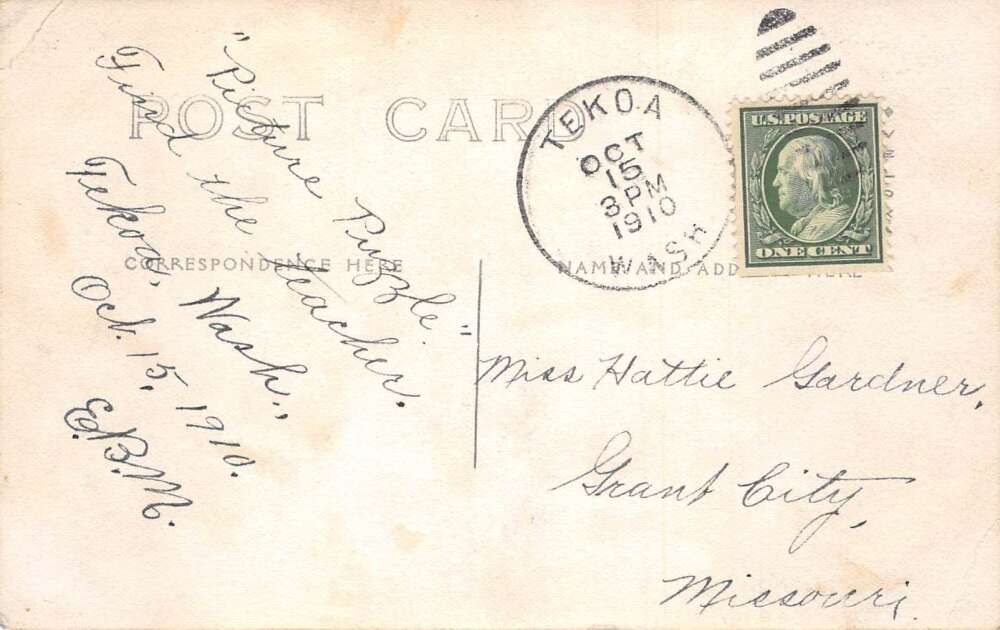 POST CARD
"Picture Puzzle."
Find the teacher.
Tekoa, Wash.,
Oct. 15, 1910.
E.B.M.
CORRESPONDENCE HERE
TEKOA
OCT
15
3 PM
1910
WASH
U.S. POSTAGE
ONE CENT
NAME AND ADD HERE
Miss Hattie Gardner,
Grant City,
Missouri.